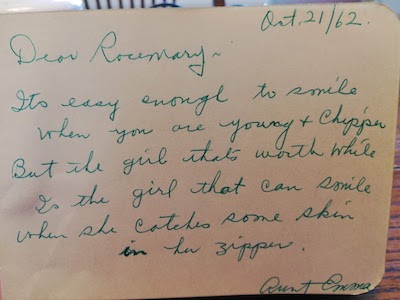 Oct. 21/62.
Dear Rosemary~
Its easy enough to smile
When you are young & Chipper
But the girl thats worth while
Is the girl that can smile
When she catches some skin
in her zipper.
Aunt Emma